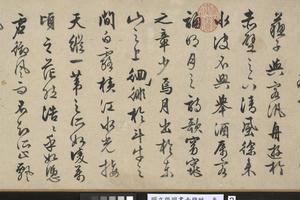 蘇子與客泛舟遊於
赤壁之下清風徐來
水波不興舉酒屬客
誦明月之詩歌窈窕
之章少焉月出於東
山之上徘徊於斗牛之
間白露橫江水光接
天縱一葦之所如凌萬
頃之茫然浩浩乎如憑
虛御風而不知所止飄